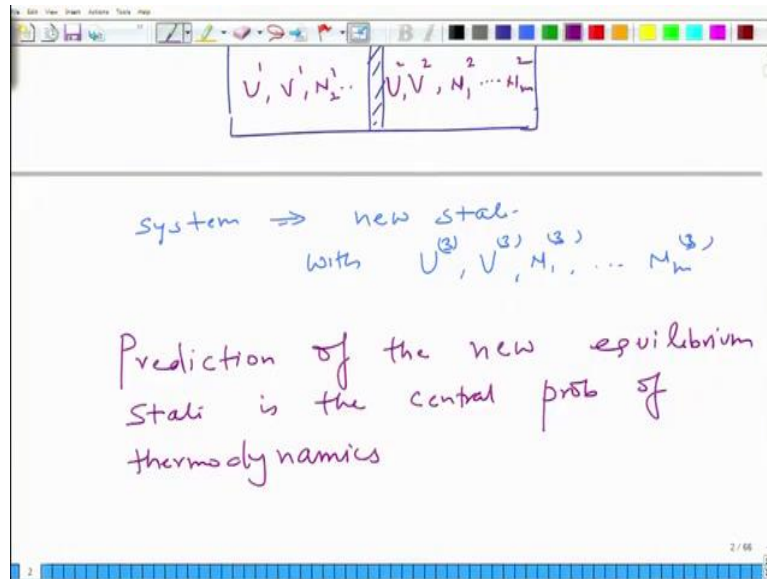 File Edit View Insert Actions Tools Help
U¹, V¹, N₂¹.. U², V², N₁² .... N_m²
system ⇒ new stat-
with U⁽³⁾, V⁽³⁾, N₁⁽³⁾, ... N_m⁽³⁾
Prediction of the new equilibrium
state is the central prob of
thermodynamics
2 / 66
2